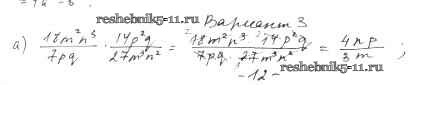 reshebnik5-11.ru Вариант 3
а) 18m²n³/7pq · 14p²q/27m³n² = 18m²n³ · 14p²q/7pq · 27m³n² = 4np/3m ;
- 12 -
reshebnik5-11.ru